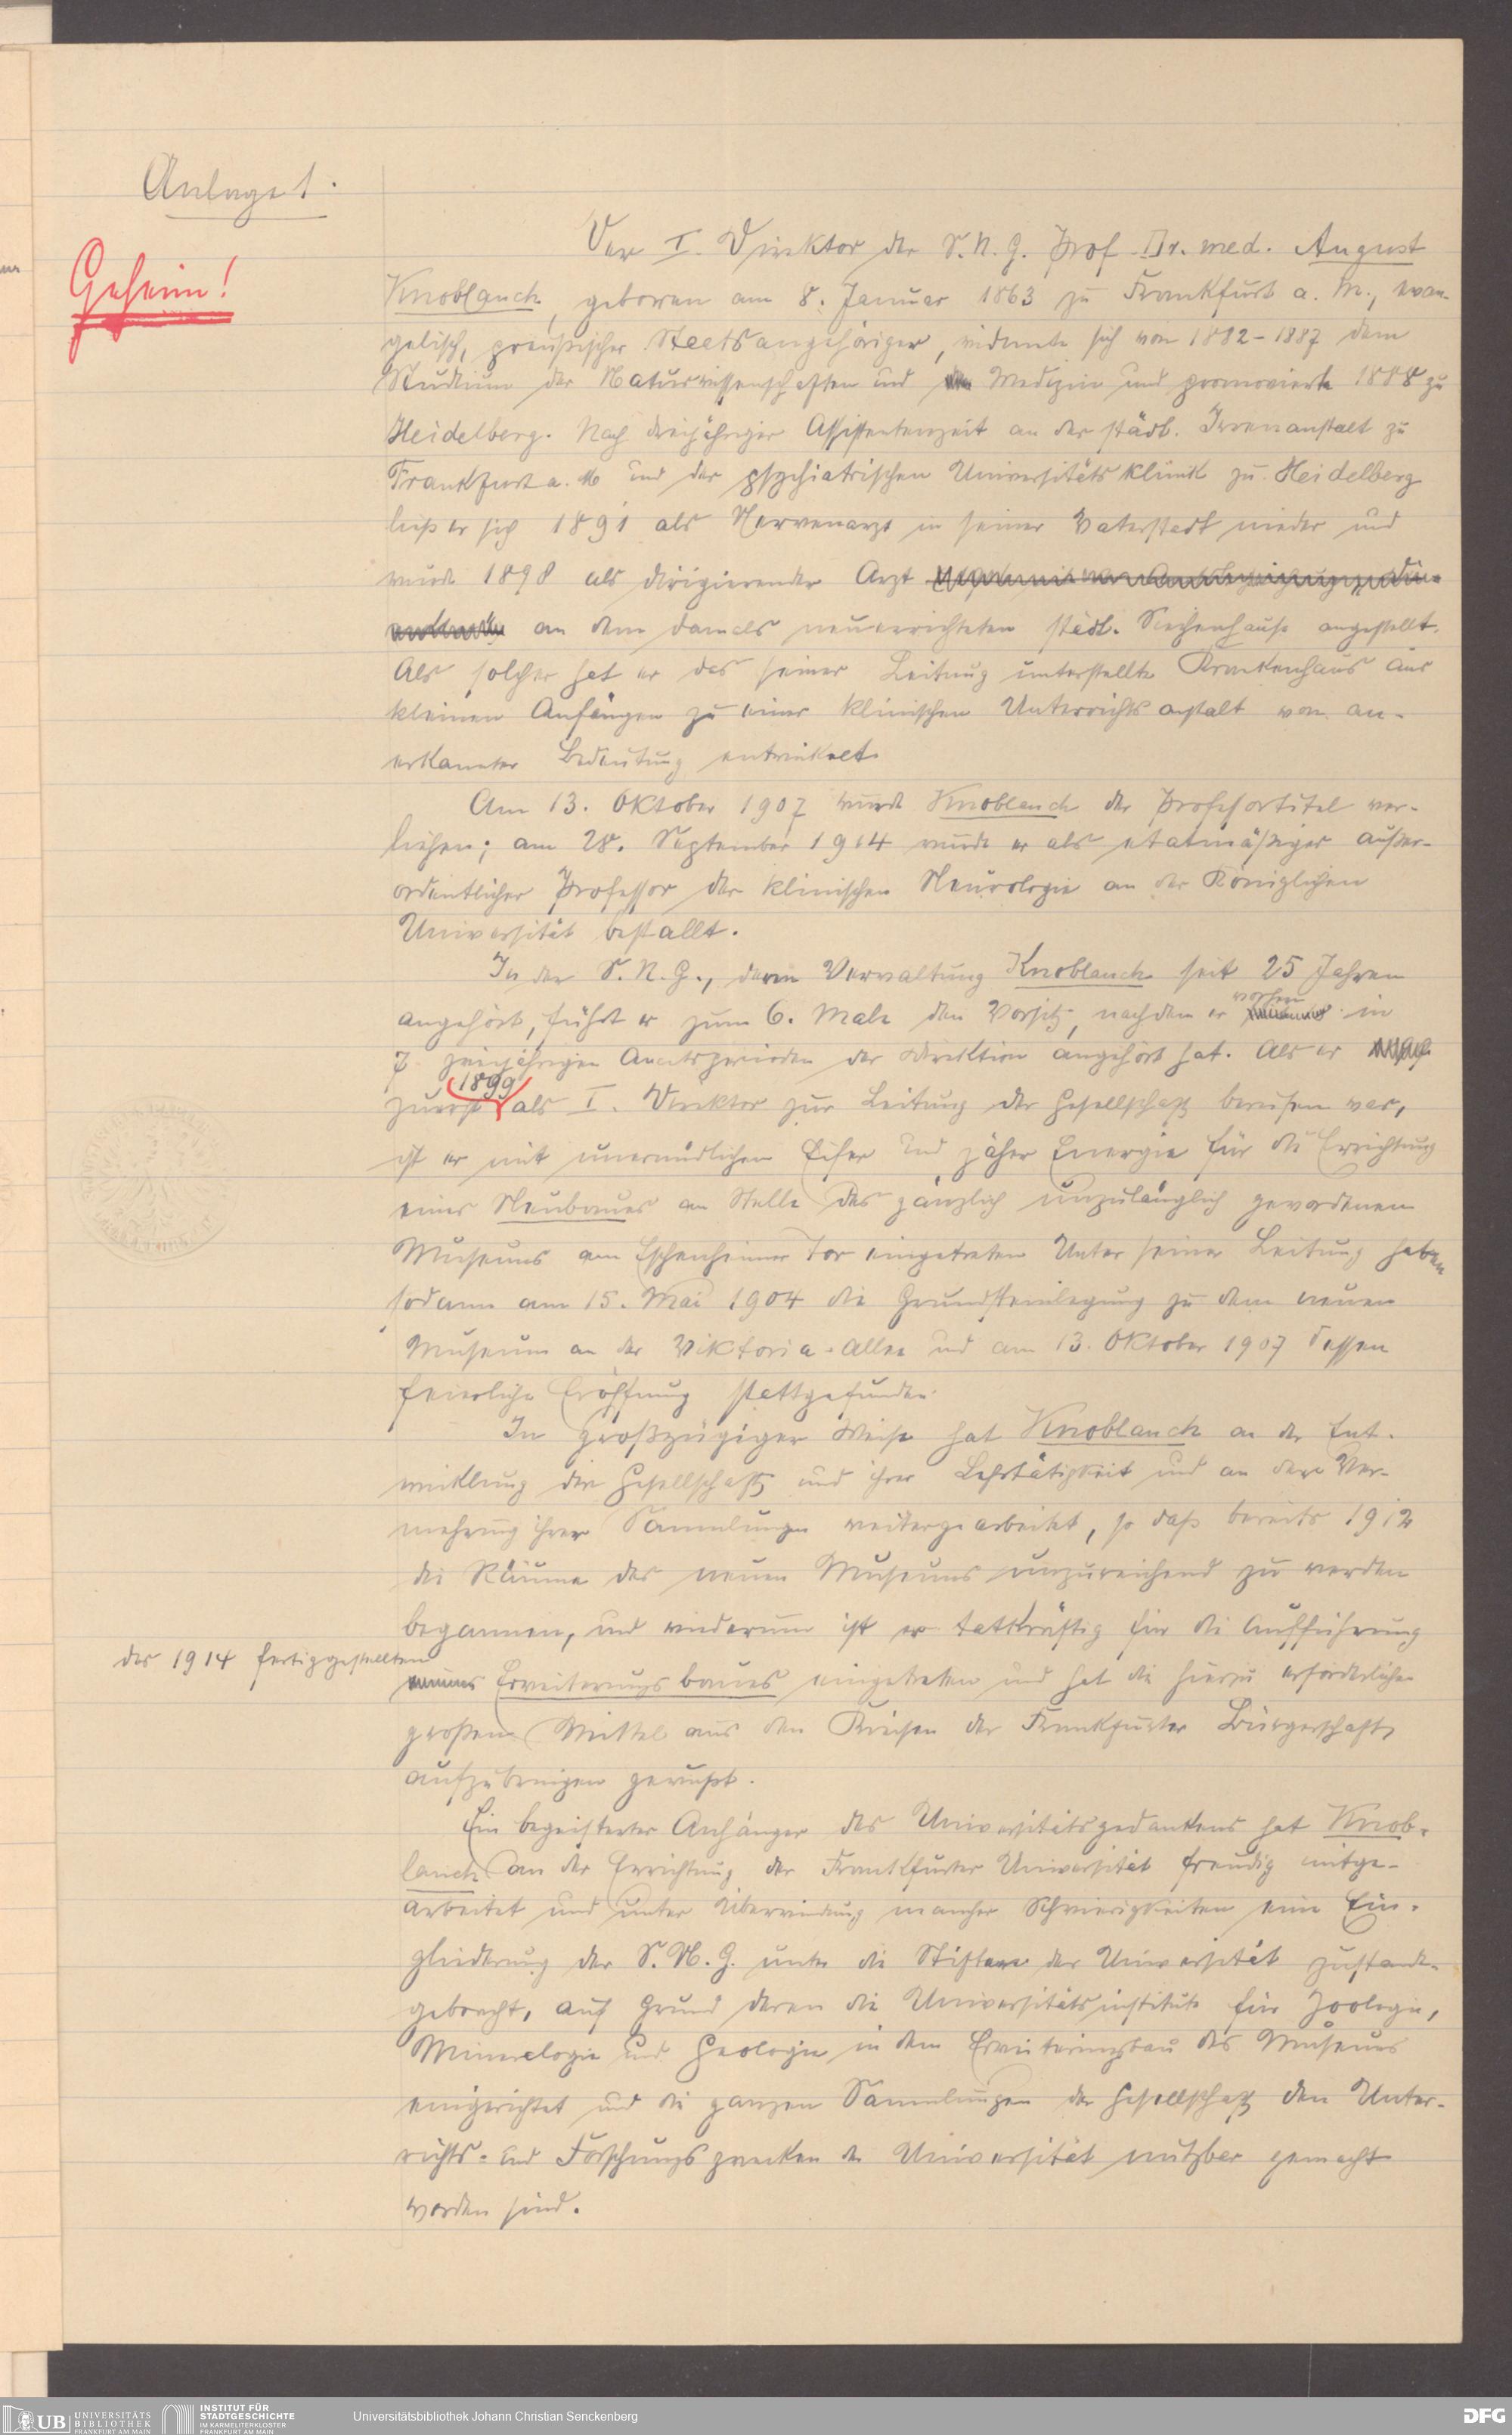 Anlage 1.
Geheim!
Der I. Direktor der S. N. G. Prof. Dr. med. August
Knoblauch, geboren am 8. Januar 1863 zu Frankfurt a. M., evan-
gelisch, preußischer Staatsangehöriger, widmete sich von 1882-1887 dem
Studium der Naturwissenschaften und Medizin und promovierte 1888 zu
Heidelberg. Nach dreijähriger Assistentenzeit an der städt. Irrenanstalt zu
Frankfurt a. M und der psychiatrischen Universitätsklinik zu Heidelberg
ließ er sich 1891 als Nervenarzt in seiner Vaterstadt nieder und
wurde 1898 als dirigierender Arzt
an dem damals neuerrichteten städt. Siechenhause angestellt.
Als solcher hat er das seiner Leitung unterstellte Krankenhaus aus
kleinen Anfängen zu einer klinischen Unterrichtsanstalt von an-
erkannter Bedeutung entwickelt.
Am 13. Oktober 1907 wurde Knoblauch der Professortitel ver-
liehen; am 28. September 1914 wurde er als etatmäßiger außer-
ordentlicher Professor der klinischen Neurologie an der Königlichen
Universität bestallt.
In der S. N. G., deren Verwaltung Knoblauch seit 25 Jahren
angehört, führt er zum 6. Male den Vorsitz, nachdem er vorher in
7 zweijährigen Amtsperioden der Direktion angehört hat. Als er
zuerst 1899 als I. Direktor zur Leitung der Gesellschaft berufen war,
ist er mit unermüdlichem Eifer und zäher Energie für die Errichtung
eines Neubaues an Stelle des gänzlich unzulänglich gewordenen
Museums am Eschenheimer Tor eingetreten. Unter seiner Leitung haben
sodann am 15. Mai 1904 die Grundsteinlegung zu dem neuen
Museum an der Viktoria-Allee und am 13. Oktober 1907 dessen
feierliche Eröffnung stattgefunden.
In großzügiger Weise hat Knoblauch an der Ent-
wicklung der Gesellschaft und ihrer Lehrtätigkeit und an der Ver-
mehrung ihrer Sammlungen weitergearbeitet, so daß bereits 1912
die Räume des neuen Museums unzureichend zu werden
begannen, und wiederum ist er tatkräftig für die Aufführung
des 1914 fertiggestellten
Erweiterungsbaues eingetreten und hat die hierzu erforderlichen
großen Mittel aus den Kreisen der Frankfurter Bürgerschaft
aufzubringen gewußt.
Ein begeisterter Anhänger des Universitätsgedankens hat Knob-
lauch an der Errichtung der Frankfurter Universität freudig mitge-
arbeitet und unter Überwindung mancher Schwierigkeiten eine Ein-
gliederung der S. N. G. unter die Stifter der Universität zustande-
gebracht, auf Grund deren die Universitätsinstitute für Zoologie,
Mineralogie und Geologie in dem Erweiterungsbau des Museums
eingerichtet und die ganzen Sammlungen der Gesellschaft den Unter-
richts- und Forschungszwecken der Universität nutzbar gemacht
worden sind.
UB UNIVERSITÄTS
BIBLIOTHEK
FRANKFURT AM MAIN
INSTITUT FÜR
STADTGESCHICHTE
IM KARMELITERKLOSTER
FRANKFURT AM MAIN
Universitätsbibliothek Johann Christian Senckenberg
DFG